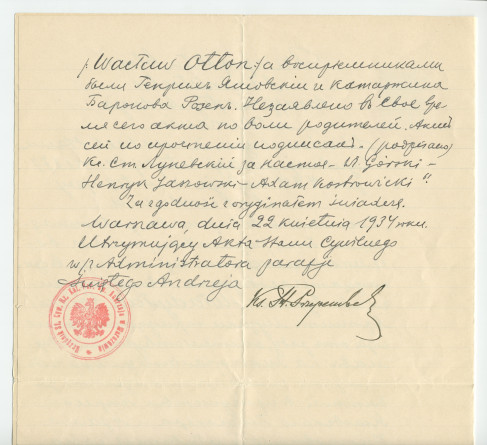 /Wacław Otton/ а воспрiемниками
были Генрихъ Яновскiй и Катаржина
Баронова Розенъ. Незаявлено въ свое вре-
мя сего акта по воли родителей. Актъ
сей по прочтенiи подписалъ. (podpisano)
Кс. Ст. за М. Górski-
Henryk Janowski - Adam Kostrowicki"
Za zgodność z oryginałem świadczę.
Warszawa, dnia 22 kwietnia 1934 roku.
Utrzymujący Akta Stanu Cywilnego
w/z Administratora parafji
Świętego Andrzeja
Ks. St.